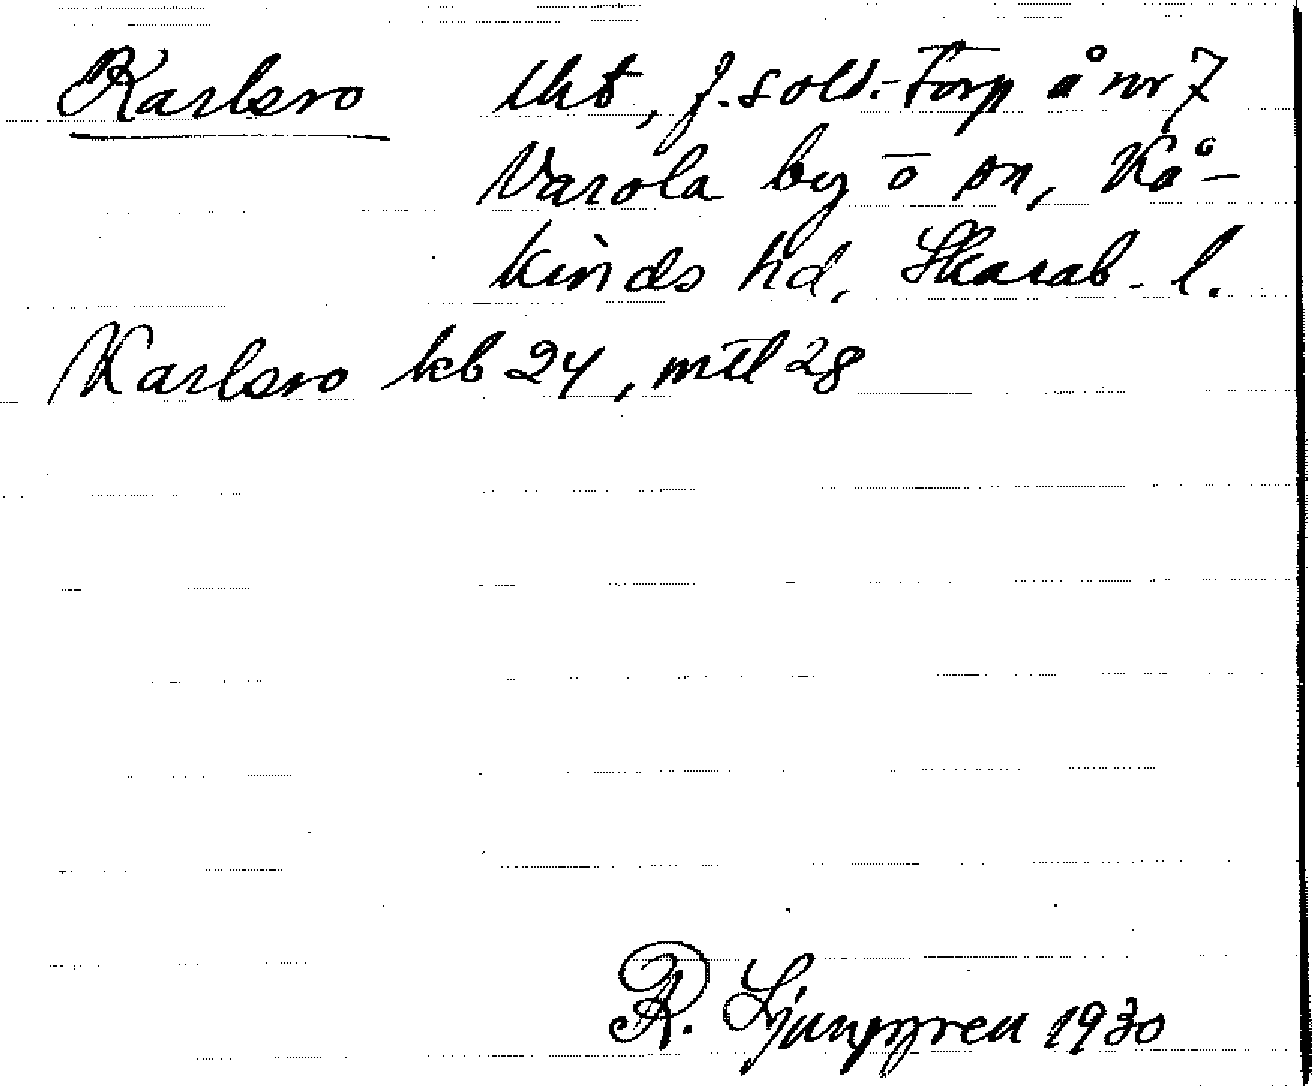 Karlsro lht, f. sold.-torp å nr 7
Varola by o sn, Kå-
kinds hd, Skarab. l.
Karlsro kb 24, mtl 28
R. Ljunggren 1930